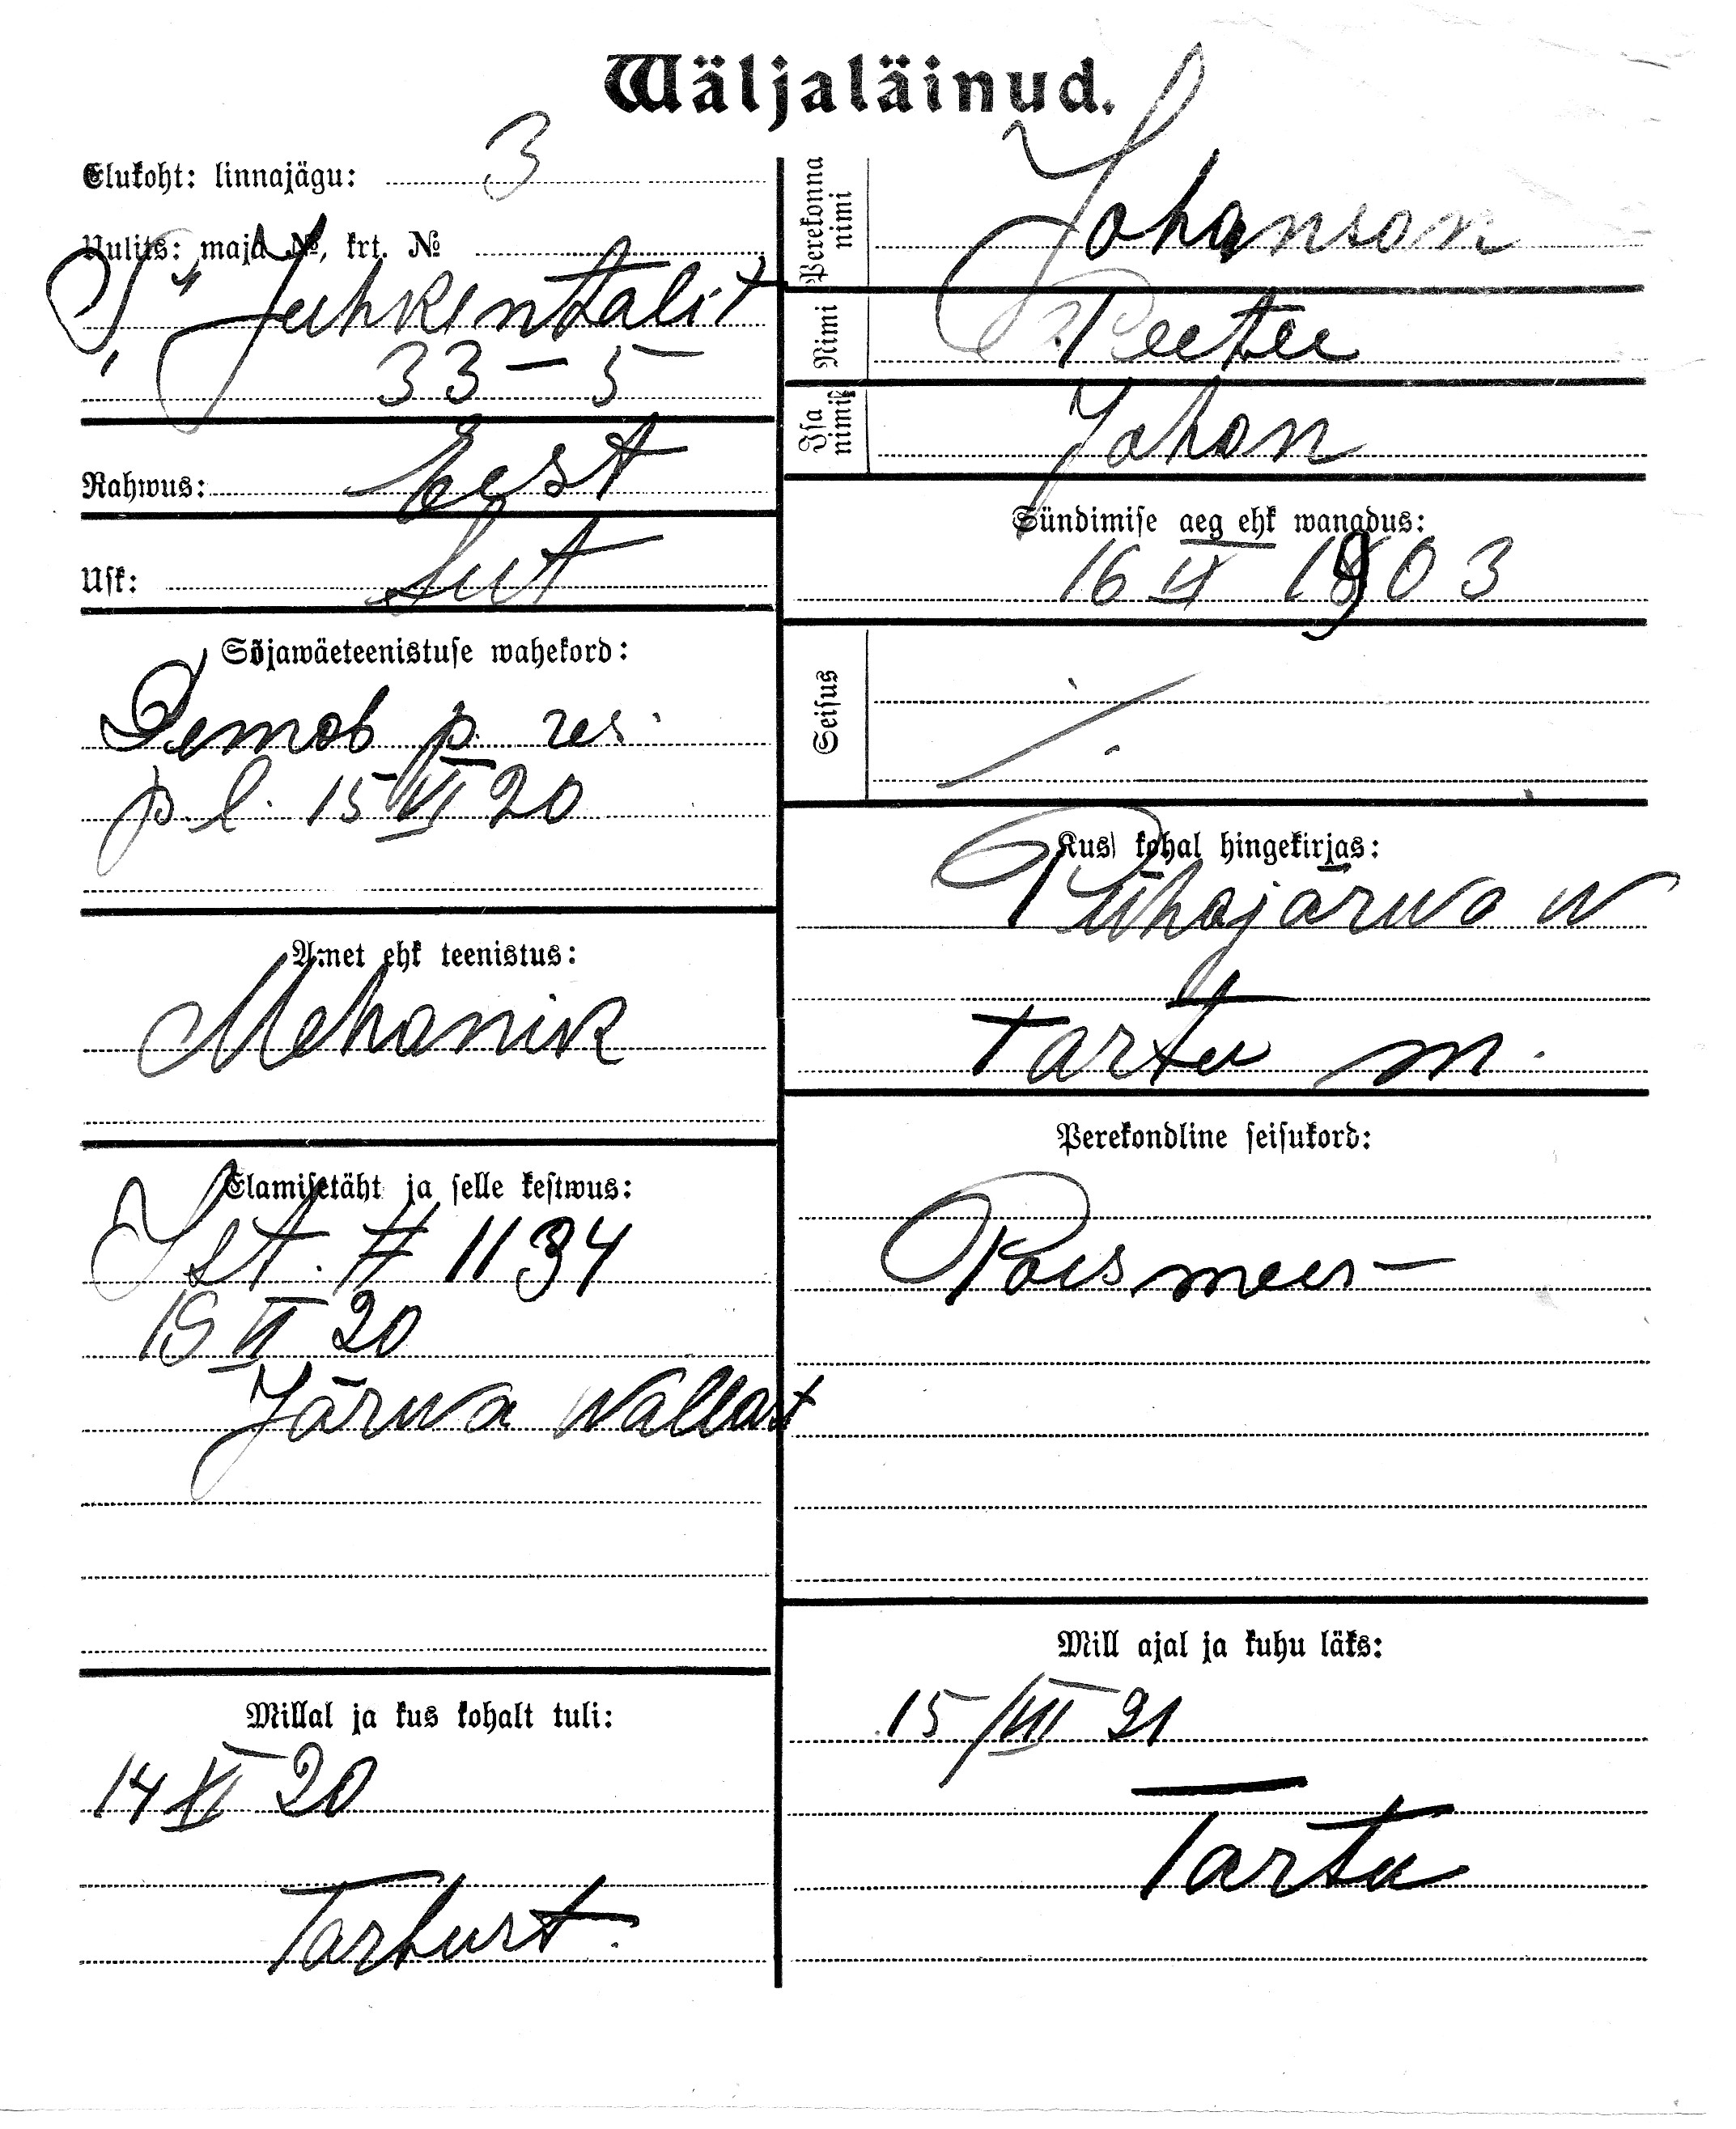 Wäljaläinud.
Elukoht: linnajägu: 3
Uulits: maja №, krt. №
S. Juhkentali t
33 – 5
Rahwus: Eest
Usk: Lut
Sõjawäeteenistuse wahekord:
Demob p. res.
p. l. 15 VI 20
Amet ehk teenistus:
Mehanik
Elamisetäht ja selle kestwus:
Ist. # 1134
15 VI 20
Järwa wallast
Millal ja kus kohalt tuli:
14 XI 20
Tartust.
Perekonna nimi Johanson
Nimi Peeter
Isa nimi Johan
Sündimise aeg ehk wanadus:
16 VI 1903
Seisus
Kus kohal hingekirjas:
Pühajärwe w
Tartu m.
Perekondline seisukord:
Poismees –
Mill ajal ja kuhu läks:
15/VII 21
Tartu